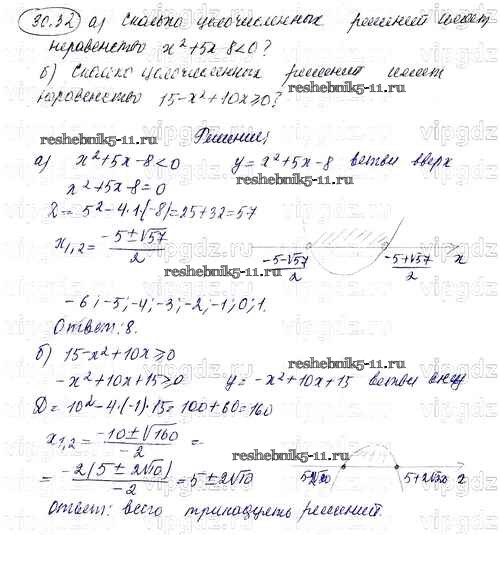 30.32 а) Сколько целочисленных решений имеет
неравенство x²+5x-8<0?
б) Сколко целочисленных решений имеет
неравенство 15-x²+10x≥0?
reshebnik5-11.ru
Решение;
reshebnik5-11.ru
а) x²+5x-8<0 y=x²+5x-8 ветви вверх
x²+5x-8=0
Д=5²-4·1·(-8)=25+32=57
x₁,₂= (-5±√57)/2
(-5-√57)/2 (-5+√57)/2 x
reshebnik5-11.ru
-6; -5; -4; -3; -2; -1; 0; 1.
Ответ: 8.
б) 15-x²+10x≥0
reshebnik5-11.ru
-x²+10x+15≥0 y=-x²+10x+15 ветви вниз
Д=10²-4·(-1)·15=100+60=160
x₁,₂= (-10±√160)/-2 =
reshebnik5-11.ru
= -2(5±2√10)/-2 = 5±2√10
5-2√10 5+2√10 x
Ответ: всего тринадцать решений.
reshebnik5-11.ru